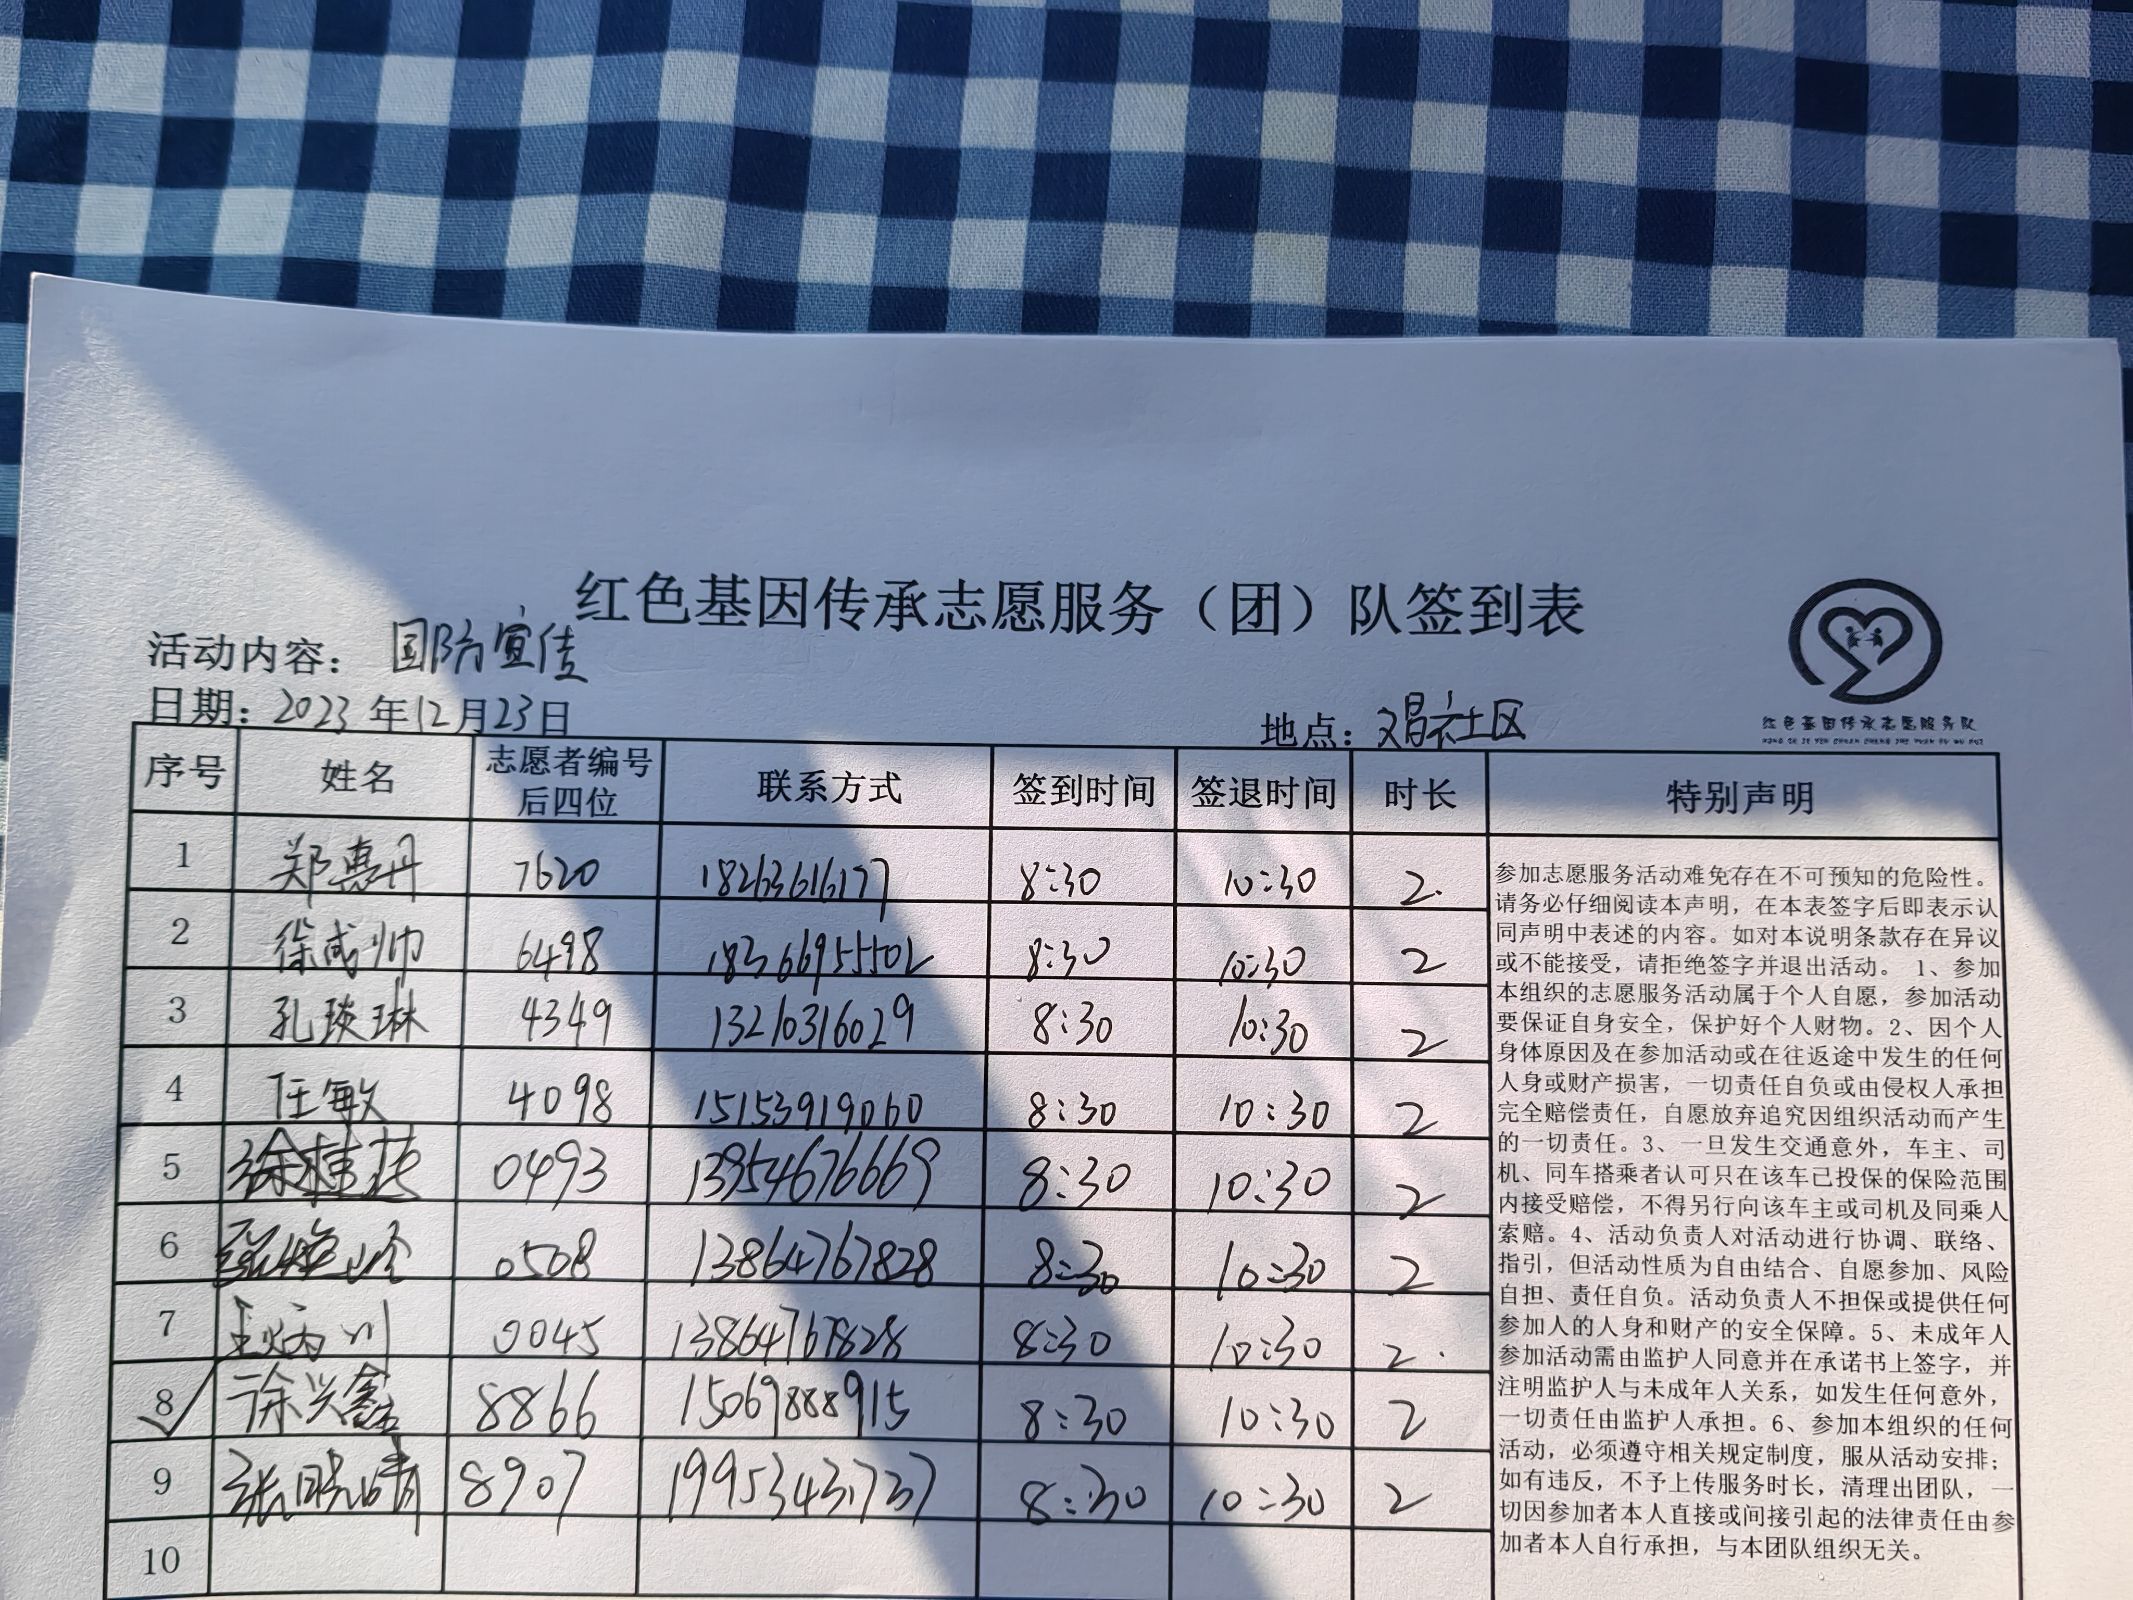 红色基因传承志愿服务（团）队签到表
活动内容：国防宣传
日期：2023年12月23日
地点：文昌社区
红色基因传承志愿服务队
序号 姓名 志愿者编号后四位 联系方式 签到时间 签退时间 时长 特别声明
1 郑惠丹 7620 18263616177 8:30 10:30 2
2 徐成帅 6498 18366955502 8:30 10:30 2
3 孔琰琳 4349 13210316029 8:30 10:30 2
4 任敏 4098 15153919060 8:30 10:30 2
5 徐桂 0493 13954676669 8:30 10:30 2
6 0508 13864767828 8:30 10:30 2
7 川 0045 13864767828 8:30 10:30 2
8 徐兴鑫 8866 15069888915 8:30 10:30 2
9 张晓晴 8907 19953431737 8:30 10:30 2
10
参加志愿服务活动难免存在不可预知的危险性。
请务必仔细阅读本声明，在本表签字后即表示认
同声明中表述的内容。如对本说明条款存在异议
或不能接受，请拒绝签字并退出活动。 1、参加
本组织的志愿服务活动属于个人自愿，参加活动
要保证自身安全，保护好个人财物。2、因个人
身体原因及在参加活动或在往返途中发生的任何
人身或财产损害，一切责任自负或由侵权人承担
完全赔偿责任，自愿放弃追究因组织活动而产生
的一切责任。3、一旦发生交通意外，车主、司
机、同车搭乘者认可只在该车已投保的保险范围
内接受赔偿，不得另行向该车主或司机及同乘人
索赔。4、活动负责人对活动进行协调、联络、
指引，但活动性质为自由结合、自愿参加、风险
自担、责任自负。活动负责人不担保或提供任何
参加人的人身和财产的安全保障。5、未成年人
参加活动需由监护人同意并在承诺书上签字，并
注明监护人与未成年人关系，如发生任何意外，
一切责任由监护人承担。6、参加本组织的任何
活动，必须遵守相关规定制度，服从活动安排；
如有违反，不予上传服务时长，清理出团队，一
切因参加者本人直接或间接引起的法律责任由参
加者本人自行承担，与本团队组织无关。